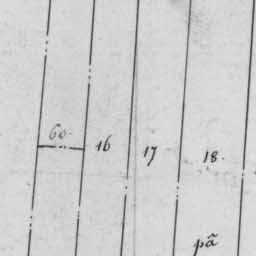 60.
16 17 18.
pã